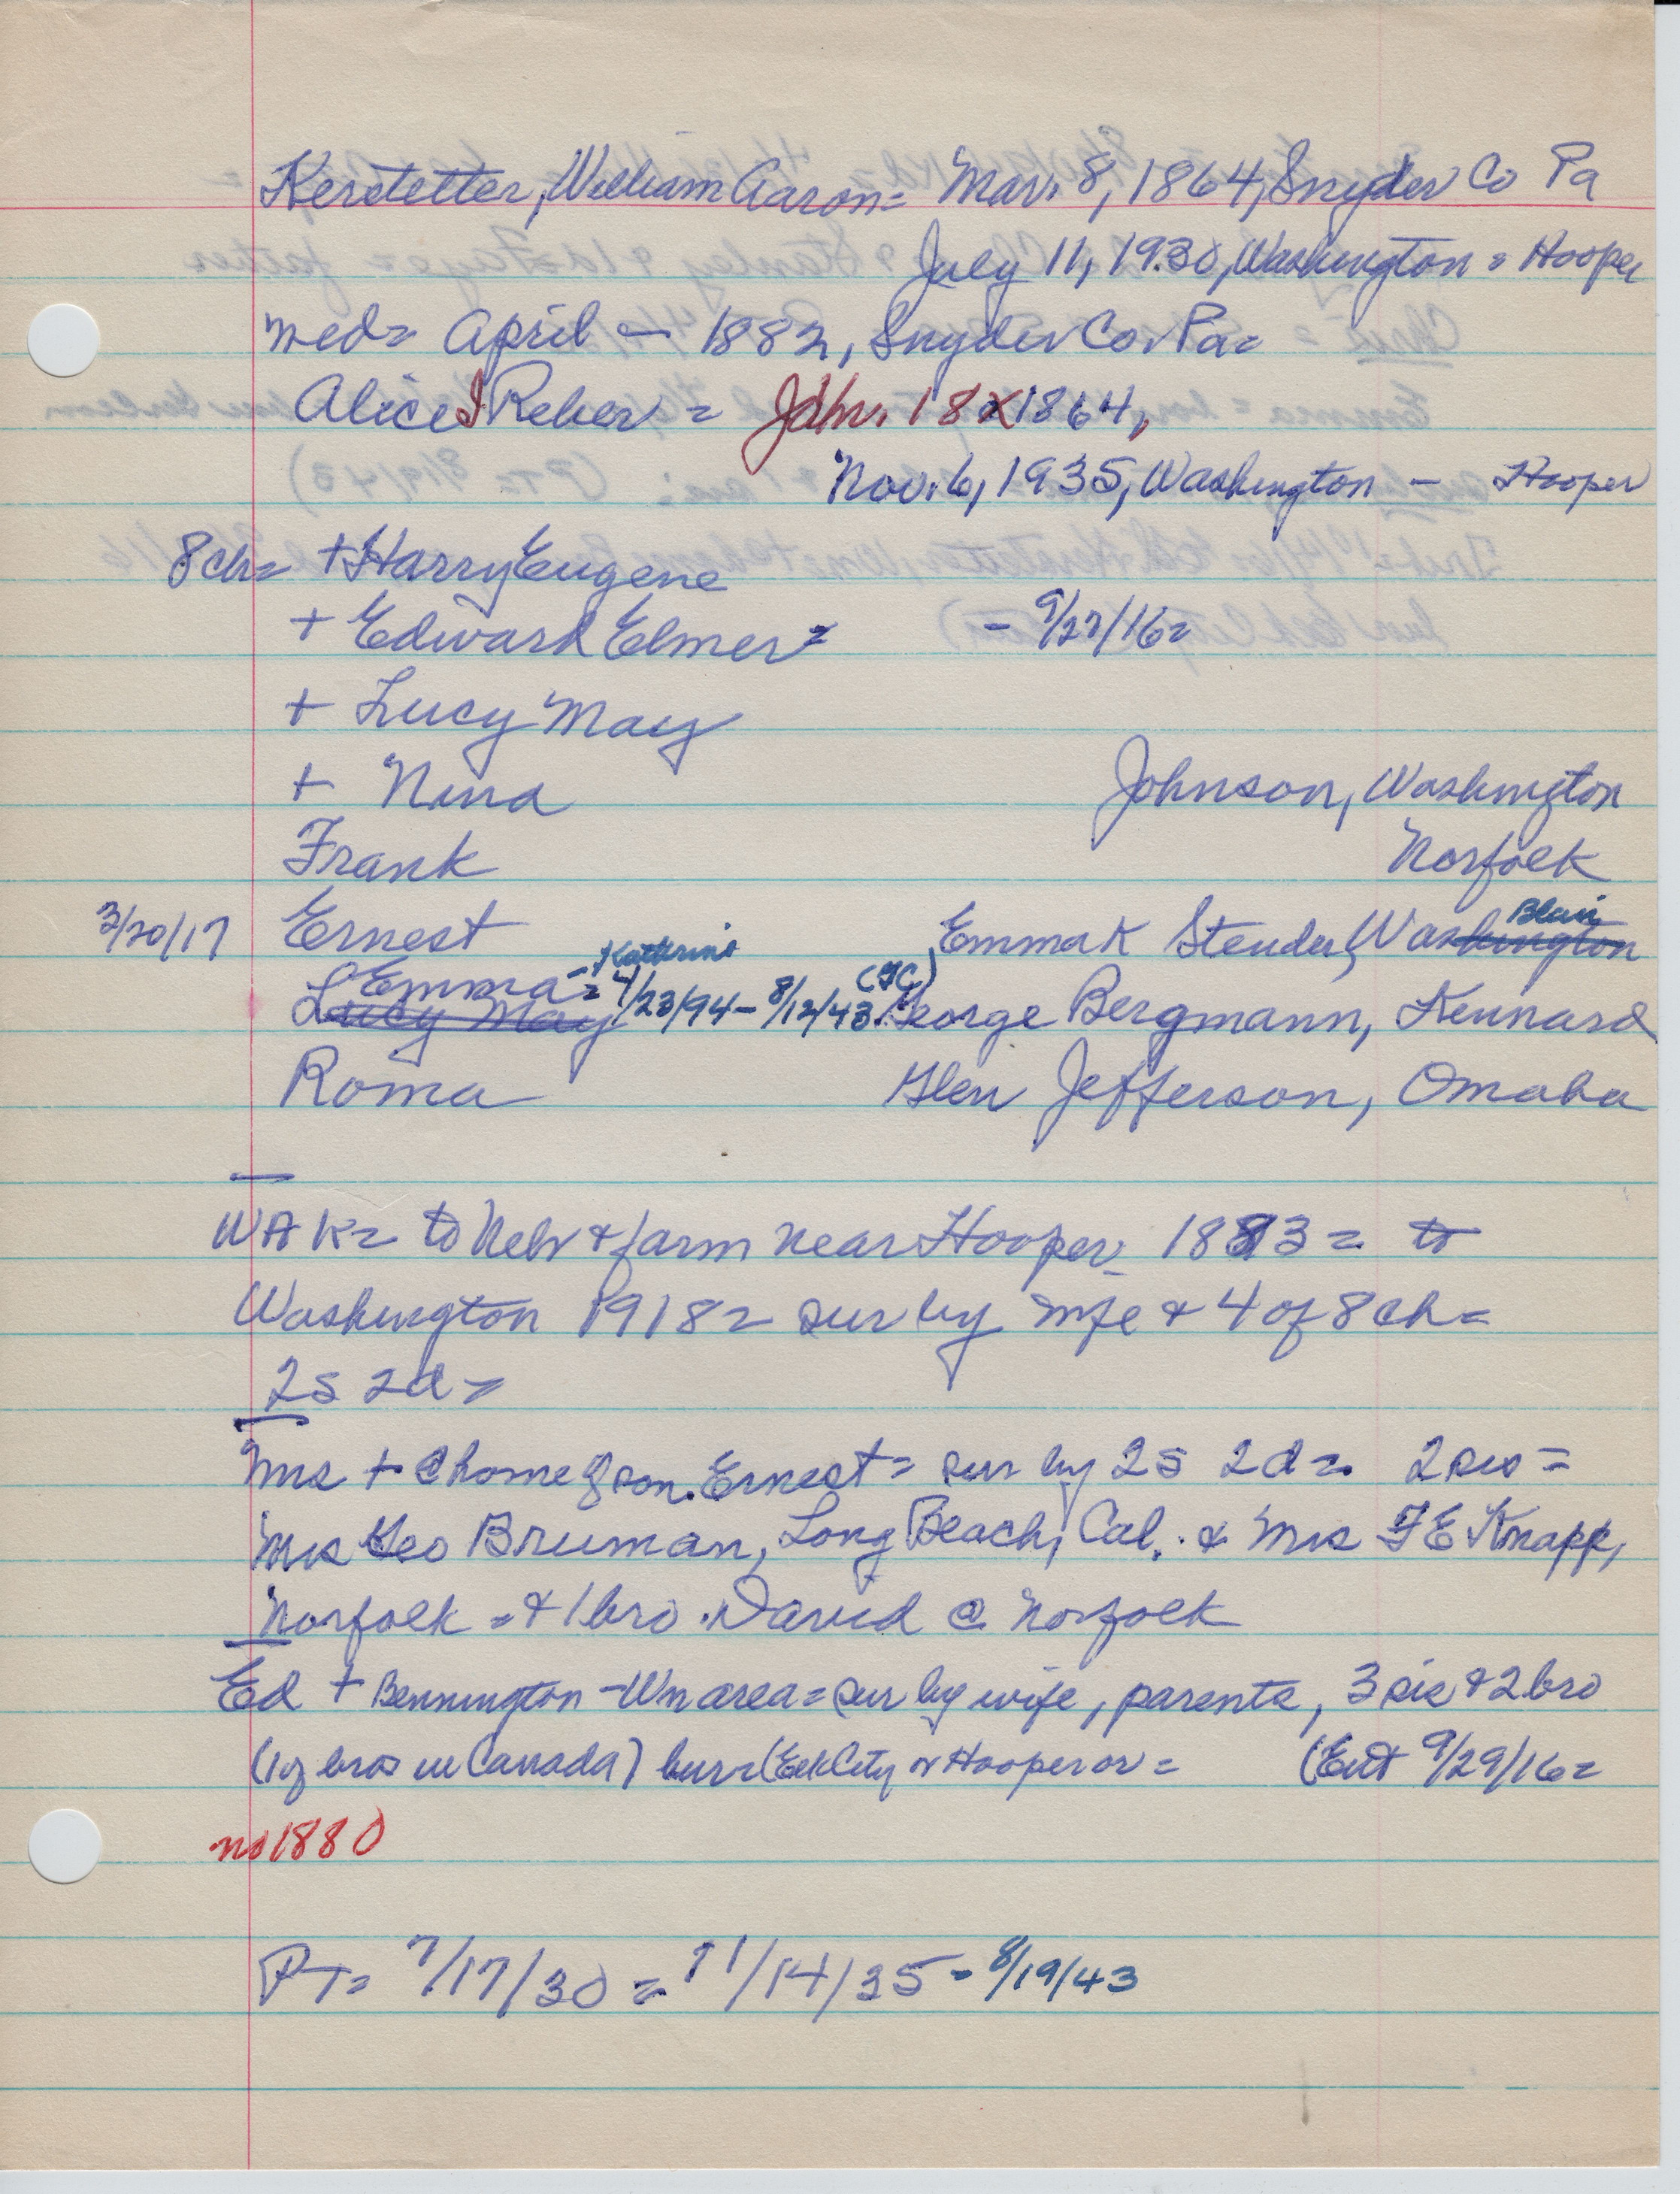 Kerstetter, William Aaron = Mar. 8, 1864, Snyder Co Pa
July 11, 1930, Washington = Hooper
med = April — 1882, Snyder Co. Pa =
Alice I Reber = 18 1864,
Nov. 6, 1935, Washington — Hooper
8 ch = + Harry Eugene
+ Edward Elmer = - 9/27/16 =
+ Lucy May
+ Nina Johnson, Washington
Frank Norfolk
3/20/17 Ernest Emma K Stender, Washington Blair
Emma = Katherine 4/23/94 - 8/12/43 (GC) George Bergmann, Kennard
Lucy May
Roma Glen Jefferson, Omaha
WAK = to Neb & farm near Hooper 1883 = to
Washington 1918 = sur by wife & 4 of 8 ch =
2s 2d =
Mrs + @ home of son Ernest = sur by 2s 2d = 2 sis =
Mrs Geo Bruman, Long Beach, Cal. & Mrs F E Knapp,
Norfolk = & 1 bro. David @ Norfolk
Ed + Bennington - Wn area = sur by wife, parents, 3 sis & 2 bro
(1 of bros in Canada) bur = (Elk City or Hooper or = (Ent 9/29/16 =
no 1880
PT = 7/17/30 = 11/14/35 - 8/19/43